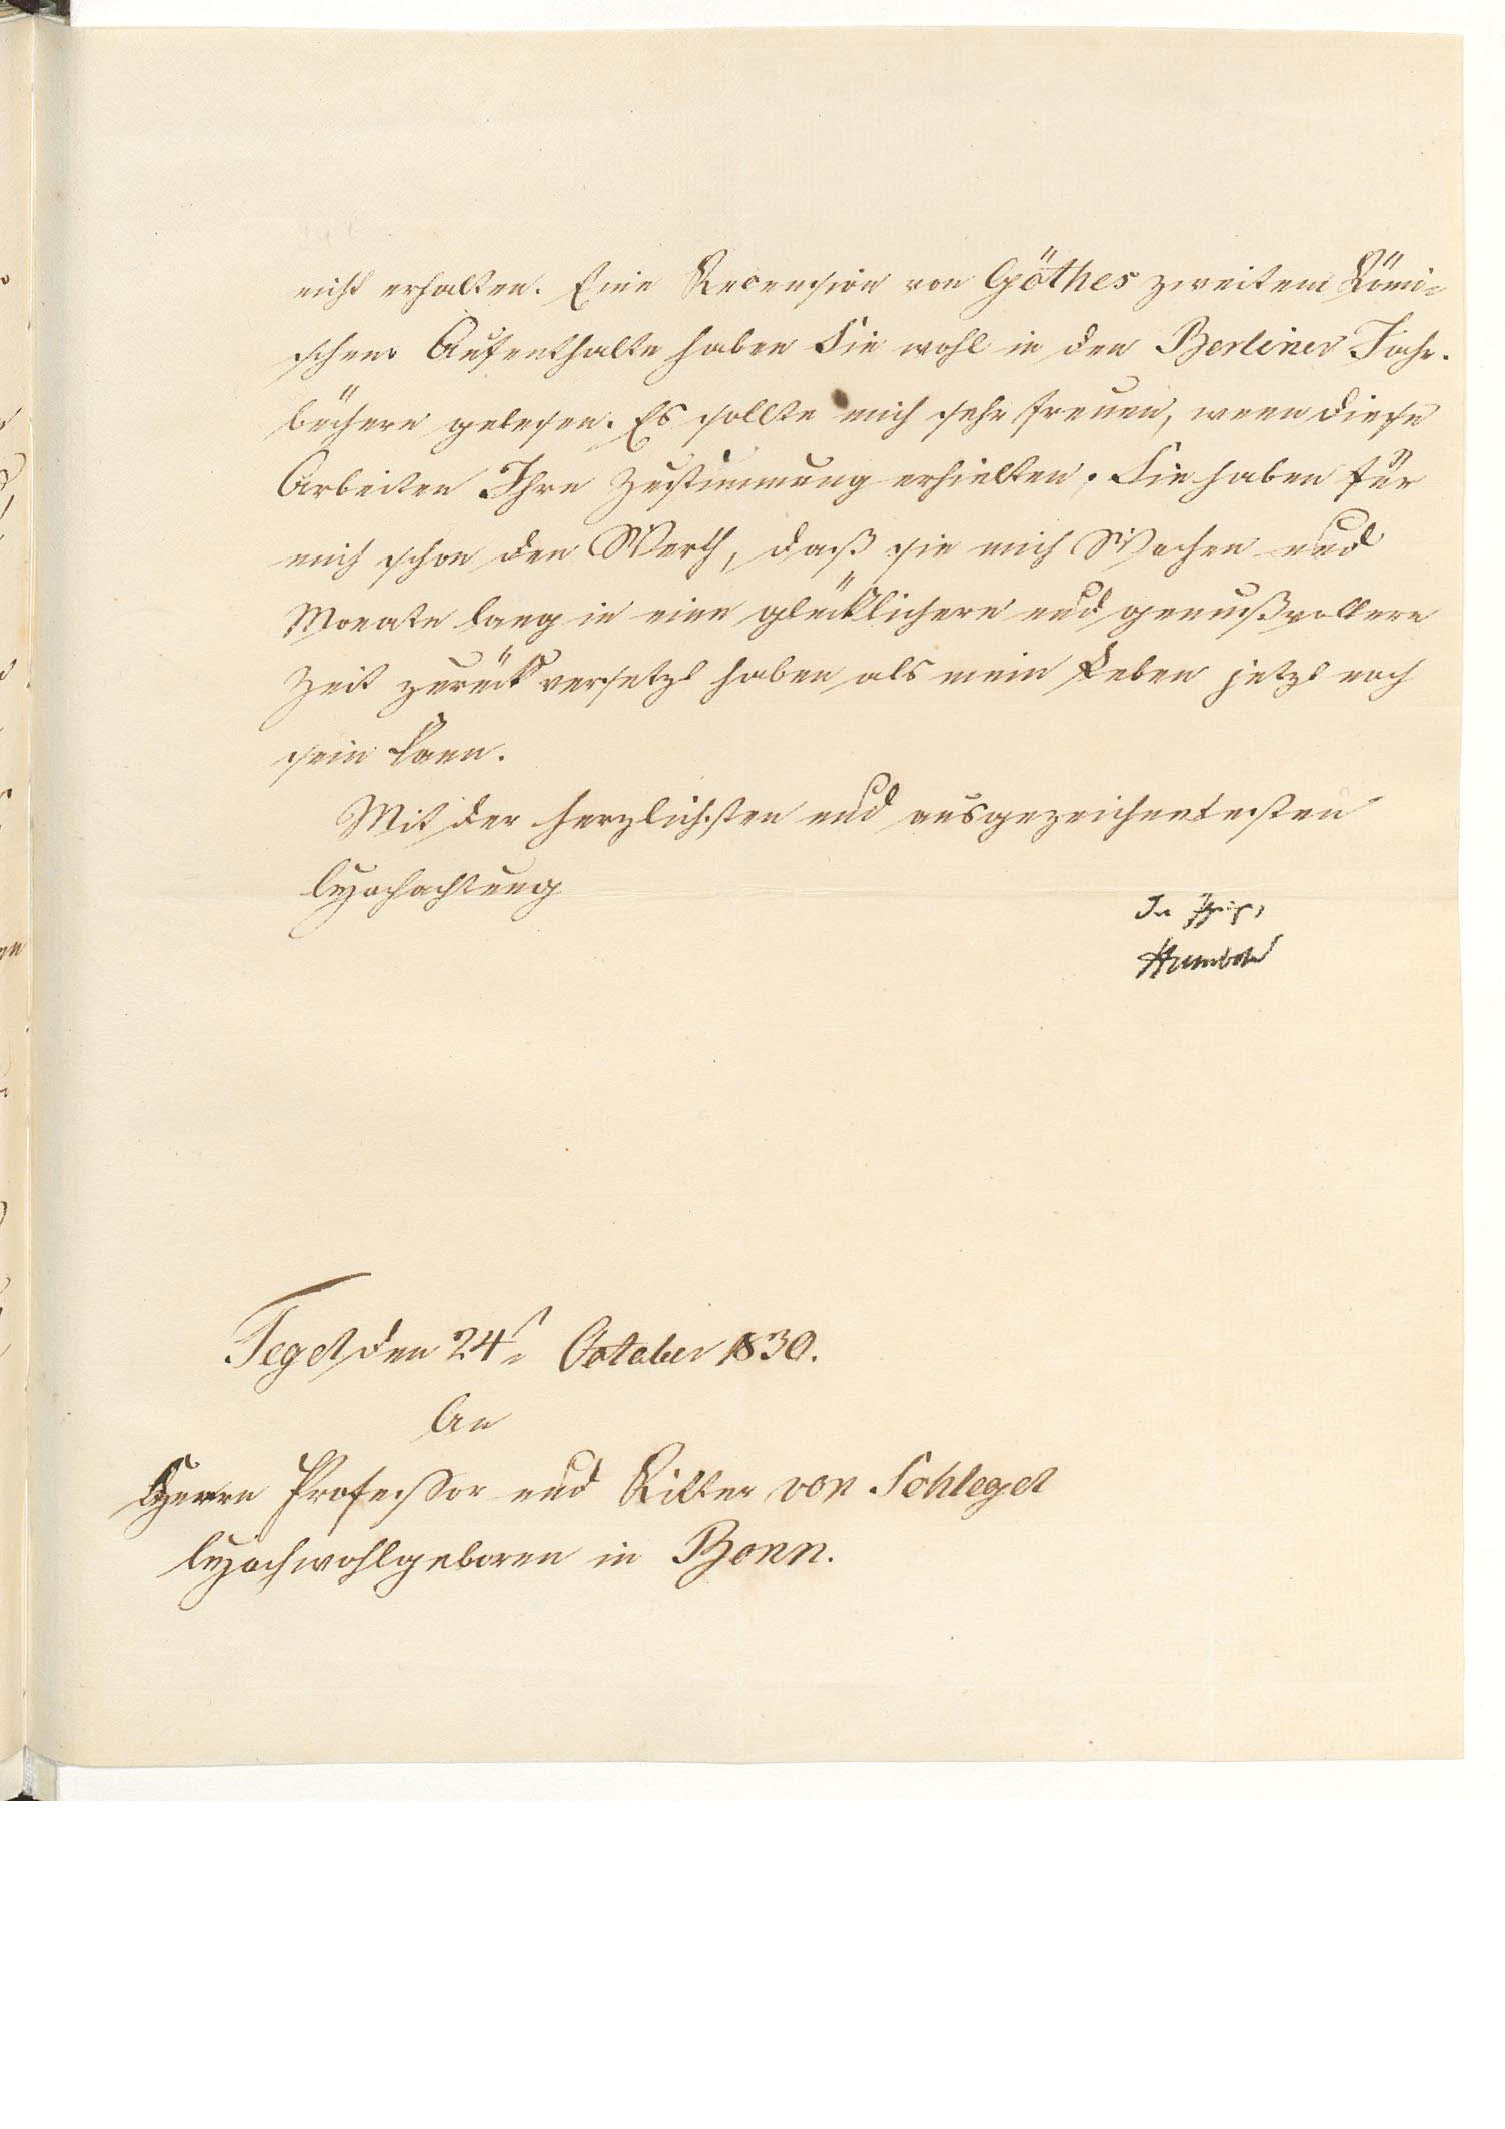 nicht erhalten. Eine Recension von Göthes zweitem Römi-
schem Aufenthalte haben Sie wohl in den Berliner Jahr-
büchern gelesen. Es sollte mich sehr freuen, wenn diese
Arbeiten Ihre Zustimmung erhielten. Sie haben für
mich schon den Werth, daß sie mich Wochen und
Monate lang in eine glücklichere und genußvollere
Zeit zurück versetzt haben als mein Leben jetzt noch
sein kann.
Mit der herzlichsten und ausgezeichnetesten
Hochachtung
Humboldt
Tegel den 24t October 1830.
An
Herrn Professor und Ritter von Schlegel
Hochwohlgeboren in Bonn.